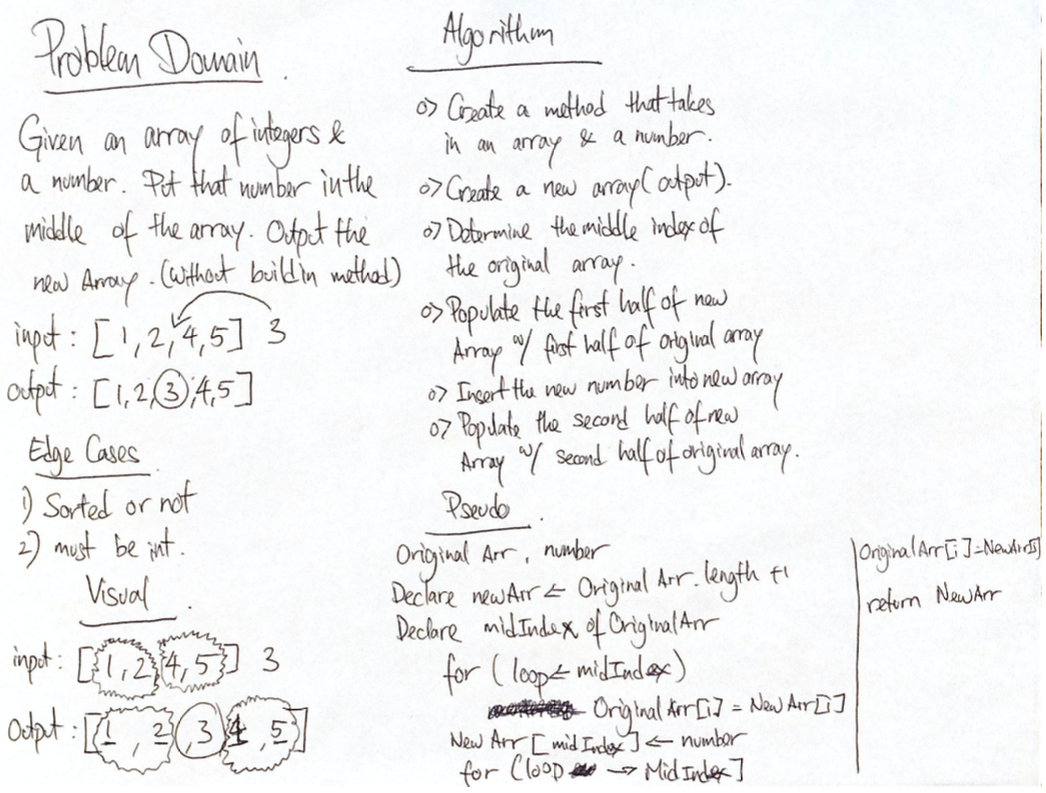 Problem Domain.
Given an array of integers &
a number. Put that number in the
middle of the array. Output the
new Array. (without buildin method)
input : [1,2,4,5] 3
output : [1,2,3,4,5]
Edge Cases
1) Sorted or not
2) must be int.
Visual.
input: [1,2,4,5] 3
Output: [1,2,3,4,5]
Algorithm
o> Create a method that takes
in an array & a number.
o> Create a new array (output).
o> Determine the middle index of
the original array.
o> Populate the first half of new
Array w/ first half of original array
o> Insert the new number into new array
o> Populate the second half of new
Array w/ second half of original array.
Pseudo.
Original Arr, number
Declare newArr ← Original Arr.length +1
Declare midIndex of OriginalArr
for (loop ← midIndex)
Original Arr[i] = New Arr[i]
New Arr [midIndex] ← number
for (loop → MidIndex]
OriginalArr[i]=NewArr[i]
return NewArr